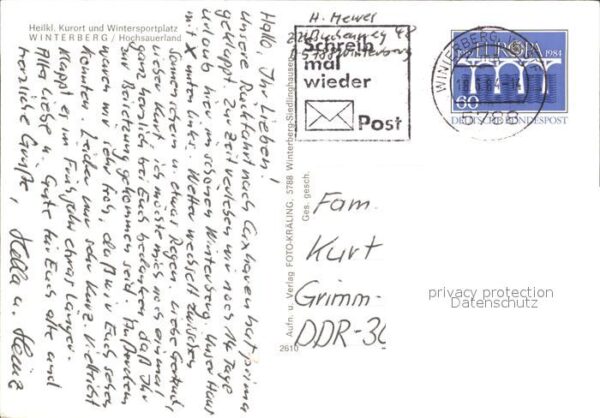 Heilkl. Kurort und Wintersportplatz
WINTERBERG / Hochsauerland
Hallo, Ihr Lieben!
Unsere Rückfahrt nach Cuxhaven hat prima
geklappt. Zur Zeit verleben wir noch 14 Tage
Urlaub hier im schönen Winterberg. Unser Haus
mit X unten links. Wetter wechselt zwischen
Sonnenschein u. etwas Regen. Liebe Gertrud,
lieber Kurt, ich möchte mich noch einmal
ganz herzlich bei Euch bedanken, daß Ihr
zur Beisetzung gekommen seid. Außerdem
waren wir sehr froh, daß wir Euch sehen
konnten. Leider nur sehr kurz. Vielleicht
klappt es im Frühjahr etwas länger.
Alles Liebe u. Gute für Euch alle und
herzliche Grüße, Hella u. Heinz
2610
Aufn. u. Verlag FOTO-KRÄLING, 5788 Winterberg-Siedlinghausen
Ges. gesch.
H. Mewes
5788 Winterberg
Schreib
mal
wieder
Post
WINTERBERG, WESTF
5788
EUROPA
1984
60
DEUTSCHE BUNDESPOST
Fam.
Kurt
Grimm-
DDR-30
privacy protection
Datenschutz